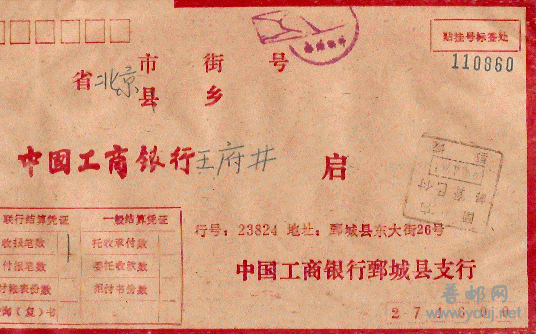 贴挂号标签处
110860
省 北京 市 街 号
县 乡
中国工商银行 王府井 启
联行结算凭证 一般结算凭证
收报笔数 1 托收承付数
付报笔数 委托收款数
付帐表份数
询(复)书
行号：23824 地址：鄄城县东大街26号
中国工商银行鄄城县支行
2 7 4 6 0 0
普邮网
www.youjj.net